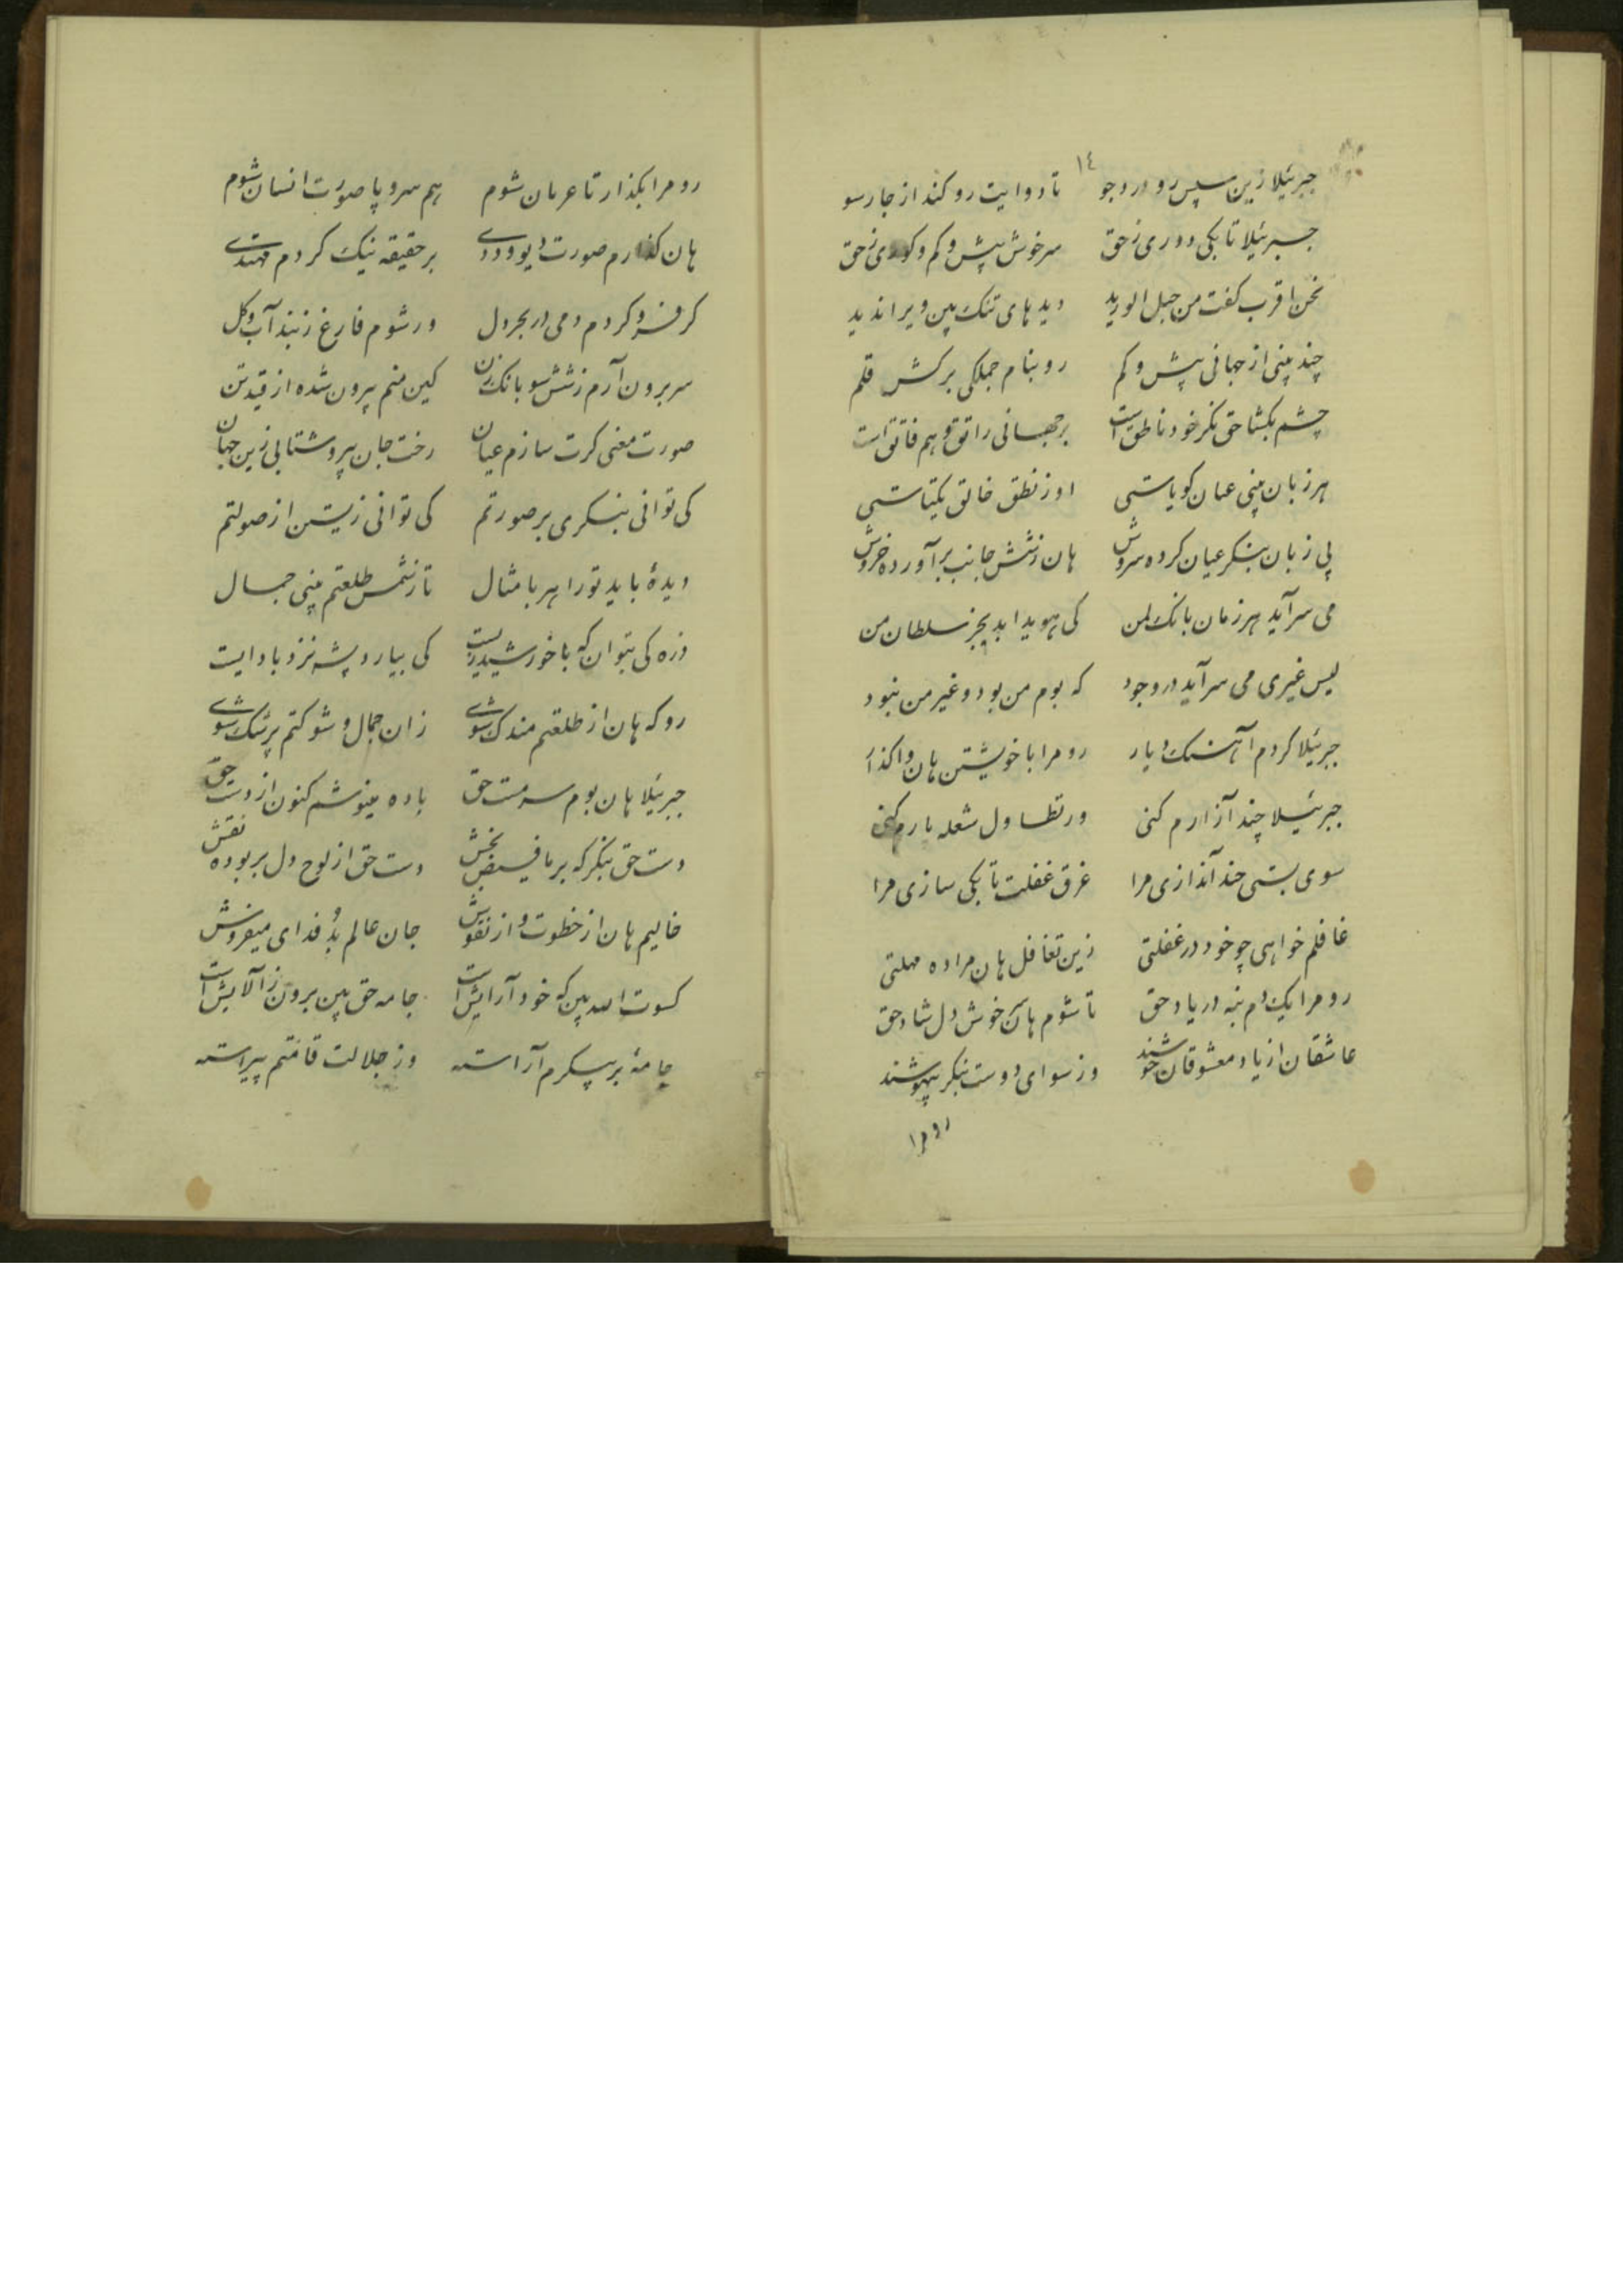 ١٤
جبرئیلا زین سپس رو در وجو تا دوایت رو کند از چارسو
جبرئیلا تا بکی دوری ز حق سر خوش پیش و کم و ز حق
نحن اقرب کفت من حبل الورید دیدهای تنک بین ویرا ندید
چند بینی از جهانی پیش و کم رو بنام جملکی برکش قلم
چشم بکشا حق نکر خود ناطق است بر جهانی راتق و هم فاتق است
هر زبان بینی عیان کویاستی او ز نطق خالق یکتاستی
بی زبان بنکر عیان کرده سروش هان ز شش جانب برآورده خروش
می سرآید هر زمان بانک لمن کی هویدا بد بجز سلطان من
لیس غیری می سرآید در وجود که بوم من بود و غیر من نبود
جبرئیلا کردم آهنک دیار رو مرا با خویشتن هان واکذار
جبرئیلا چند آزارم کنی ور تطاول شعله بارم کنی
سوی پستی چند اندازی مرا غرق غفلت تا بکی سازی مرا
غافلم خواهی چو خود در غفلتی زین تغافل هان مرا ده مهلتی
رو مرا یک دم بنه در یاد حق تا شوم هان خوش دل شاد حق
عاشقان از یاد معشوقان خوشند وز سوای دوست بنکر بیهوشند
رو مرا
رو مرا بکذار تا عریان شوم هم سر و پا صورت انسان شوم
هان کذارم صورت دیو و ددی بر حقیقه نیک کردم مهتدی
کر فرو کردم دمی در بحر دل ور شوم فارغ ز بند آب و کل
سر برون آرم ز شش سو بانک زن کین منم بیرون شده از قید تن
صورت معنی کرت سازم عیان رخت جان بیرو شتابی زین جهان
کی توانی بنکری بر صورتم کی توانی زیستن از صولتم
دیدهٔ باید تو را هر با مثال تا ز شمس طلعتم بینی جمال
ذره کی بتوان که با خورشید زیست کی بیارد پشه نزد باد ایست
رو که هان از طلعتم مندک شوی زان جمال و شوکتم پر شک شوی
جبرئیلا هان بوم سرمست حق باده مینوشم کنون از دست حق
دست حق بنکر که بر ما فیض بخش دست حق از لوح دل بربوده نقش
خالیم هان از خطوت و از نقوش جان عالم بد فدای میفروش
کسوت الله بین که خود آرایش است جامه حق بین برون ز آلایش است
جامهٔ بر پیکرم آراسته وز جلالت قامتم پیراسته